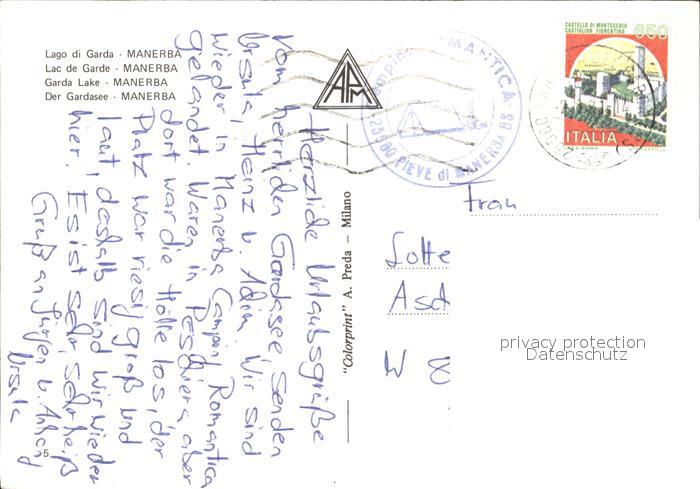 Lago di Garda - MANERBA
Lac de Garde - MANERBA
Garda Lake - MANERBA
Der Gardasee - MANERBA
APM
Camping ROMANTICA
25080 PIEVE di MANERBA BS
CASTELLO DI MONTECCHIO
CASTIGLION FIORENTINO
650
ITALIA
Herzliche Urlaubsgrüße
vom herrlichen Gardasee, senden
Ursula, Heinz u. Wir sind
wieder in Manerba Camping Romantica
gelandet. Waren in Peschiera aber
dort war die Hölle los, der
Platz war riesig groß und
laut, deshalb sind wir wieder
hier. Es ist sehr, sehr heiß
Gruß an Jürgen u. Anhang
Ursula
"Colorprint" A. Preda - Milano
5
Frau
Lotte
Asch
W 8
privacy protection
Datenschutz